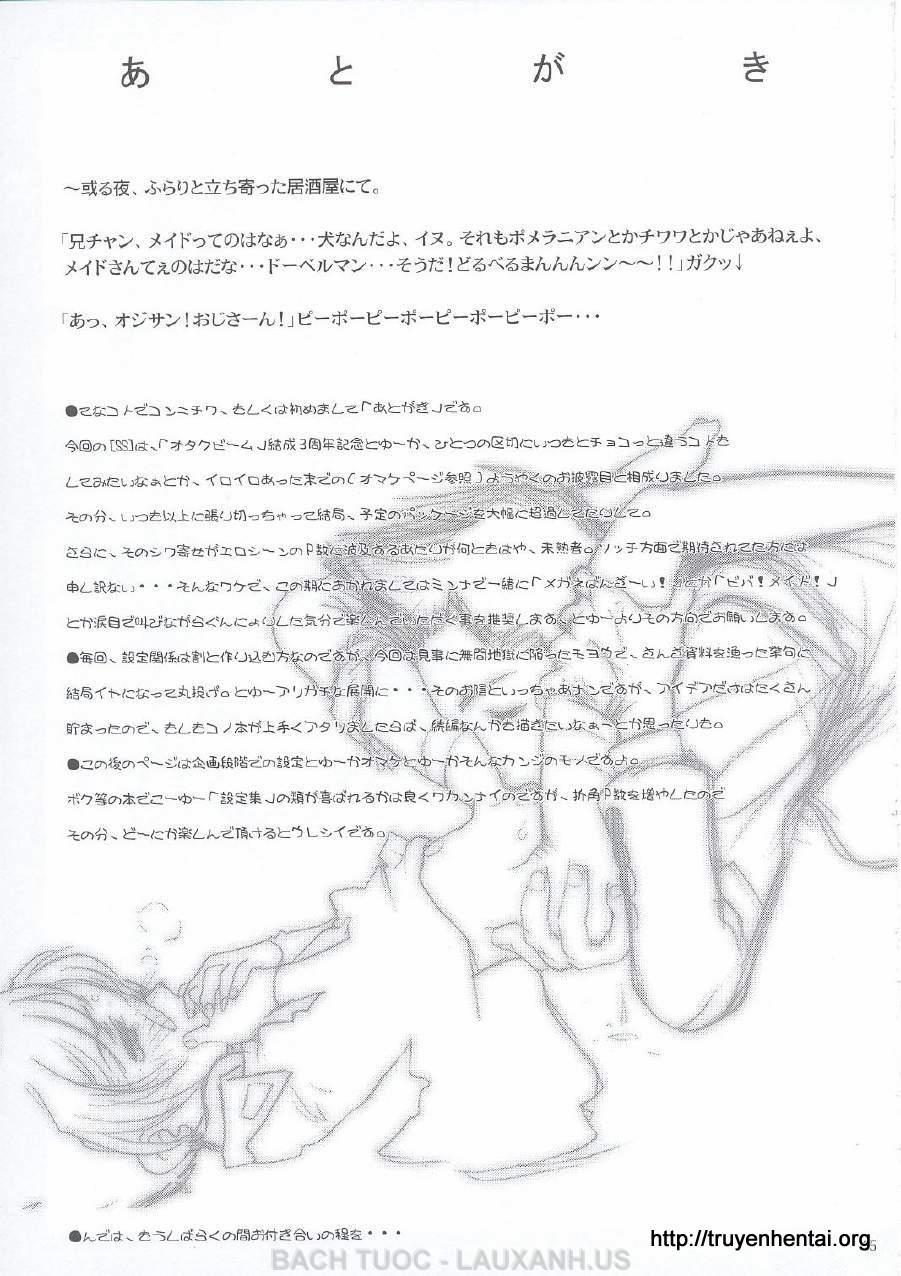 あとがき
～或る夜、ふらりと立ち寄った居酒屋にて。
「兄チャン、メイドってのはなぁ･･･犬なんだよ、イヌ。それもポメラニアンとかチワワとかじゃあねぇよ、
メイドさんてぇのはだな･･･ドーベルマン･･･そうだ！どるべるまんんんンン～～！！」ガクッ↓
「あっ、オジサン！おじさーん！」ピーポーピーポーピーポーピーポー･･･
●てなコトでコンニチワ、もしくは初めまして「あとがき」です。
今回の[SS]は、「オタクビーム」結成3周年記念とゆーか、ひとつの区切にいつもとチョコっと違うコトを
してみたいなぁとか、イロイロあった末での(オマケページ参照)ようやくのお披露目と相成りました。
その分、いつも以上に張り切っちゃって結局、予定のパッケージを大幅に超過してたりして。
さらに、そのシワ寄せがエロシーンのP数に波及するあたりが何ともはや、未熟者。ソッチ方面で期待されてた方には
申し訳ない･･･そんなワケで、この期におかれましてはミンナで一緒に「メガねばんざーい！」とか「ビバ！メイド！」
とか涙目で叫びながらぐんにょりした気分で楽しんでいただく事を推奨します。とゆーよりその方向でお願いします。
●毎回、設定関係は割と作り込む方なのですが、今回は見事に無間地獄に陥ったモヨウで、さんざ資料を漁った挙句に
結局イヤになって丸投げ。とゆーアリガチな展開に･･･そのお陰といっちゃあナンですが、アイデアだけはたくさん
貯まったので、もしもコノ本が上手くアタリましたらば、続編なんかも描きたいなぁーとか思ったりも。
●この後のページは企画段階での設定とゆーかオマケとゆーかそんなカンジのモノですよ。
ボク等の本でこーゆー「設定集」の類が喜ばれるかは良くワカンナイのですが、折角P数を増やしたので
その分、どーにか楽しんで頂けるとウレシイです。
●んでは、もうしばらくの間お付き合いの程を･･･
http://truyenhentai.org
5
BACH TUOC - LAUXANH.US